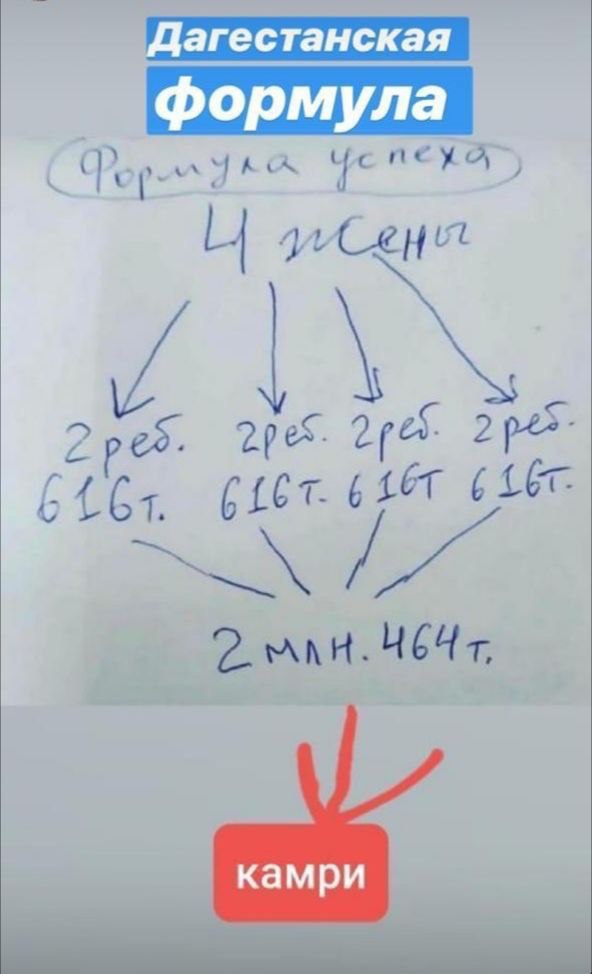 Дагестанская
формула
Формула успеха
4 жены
2 реб. 2 реб. 2 реб. 2 реб.
616т. 616т. 616т 616т.
2 млн. 464т.
камри